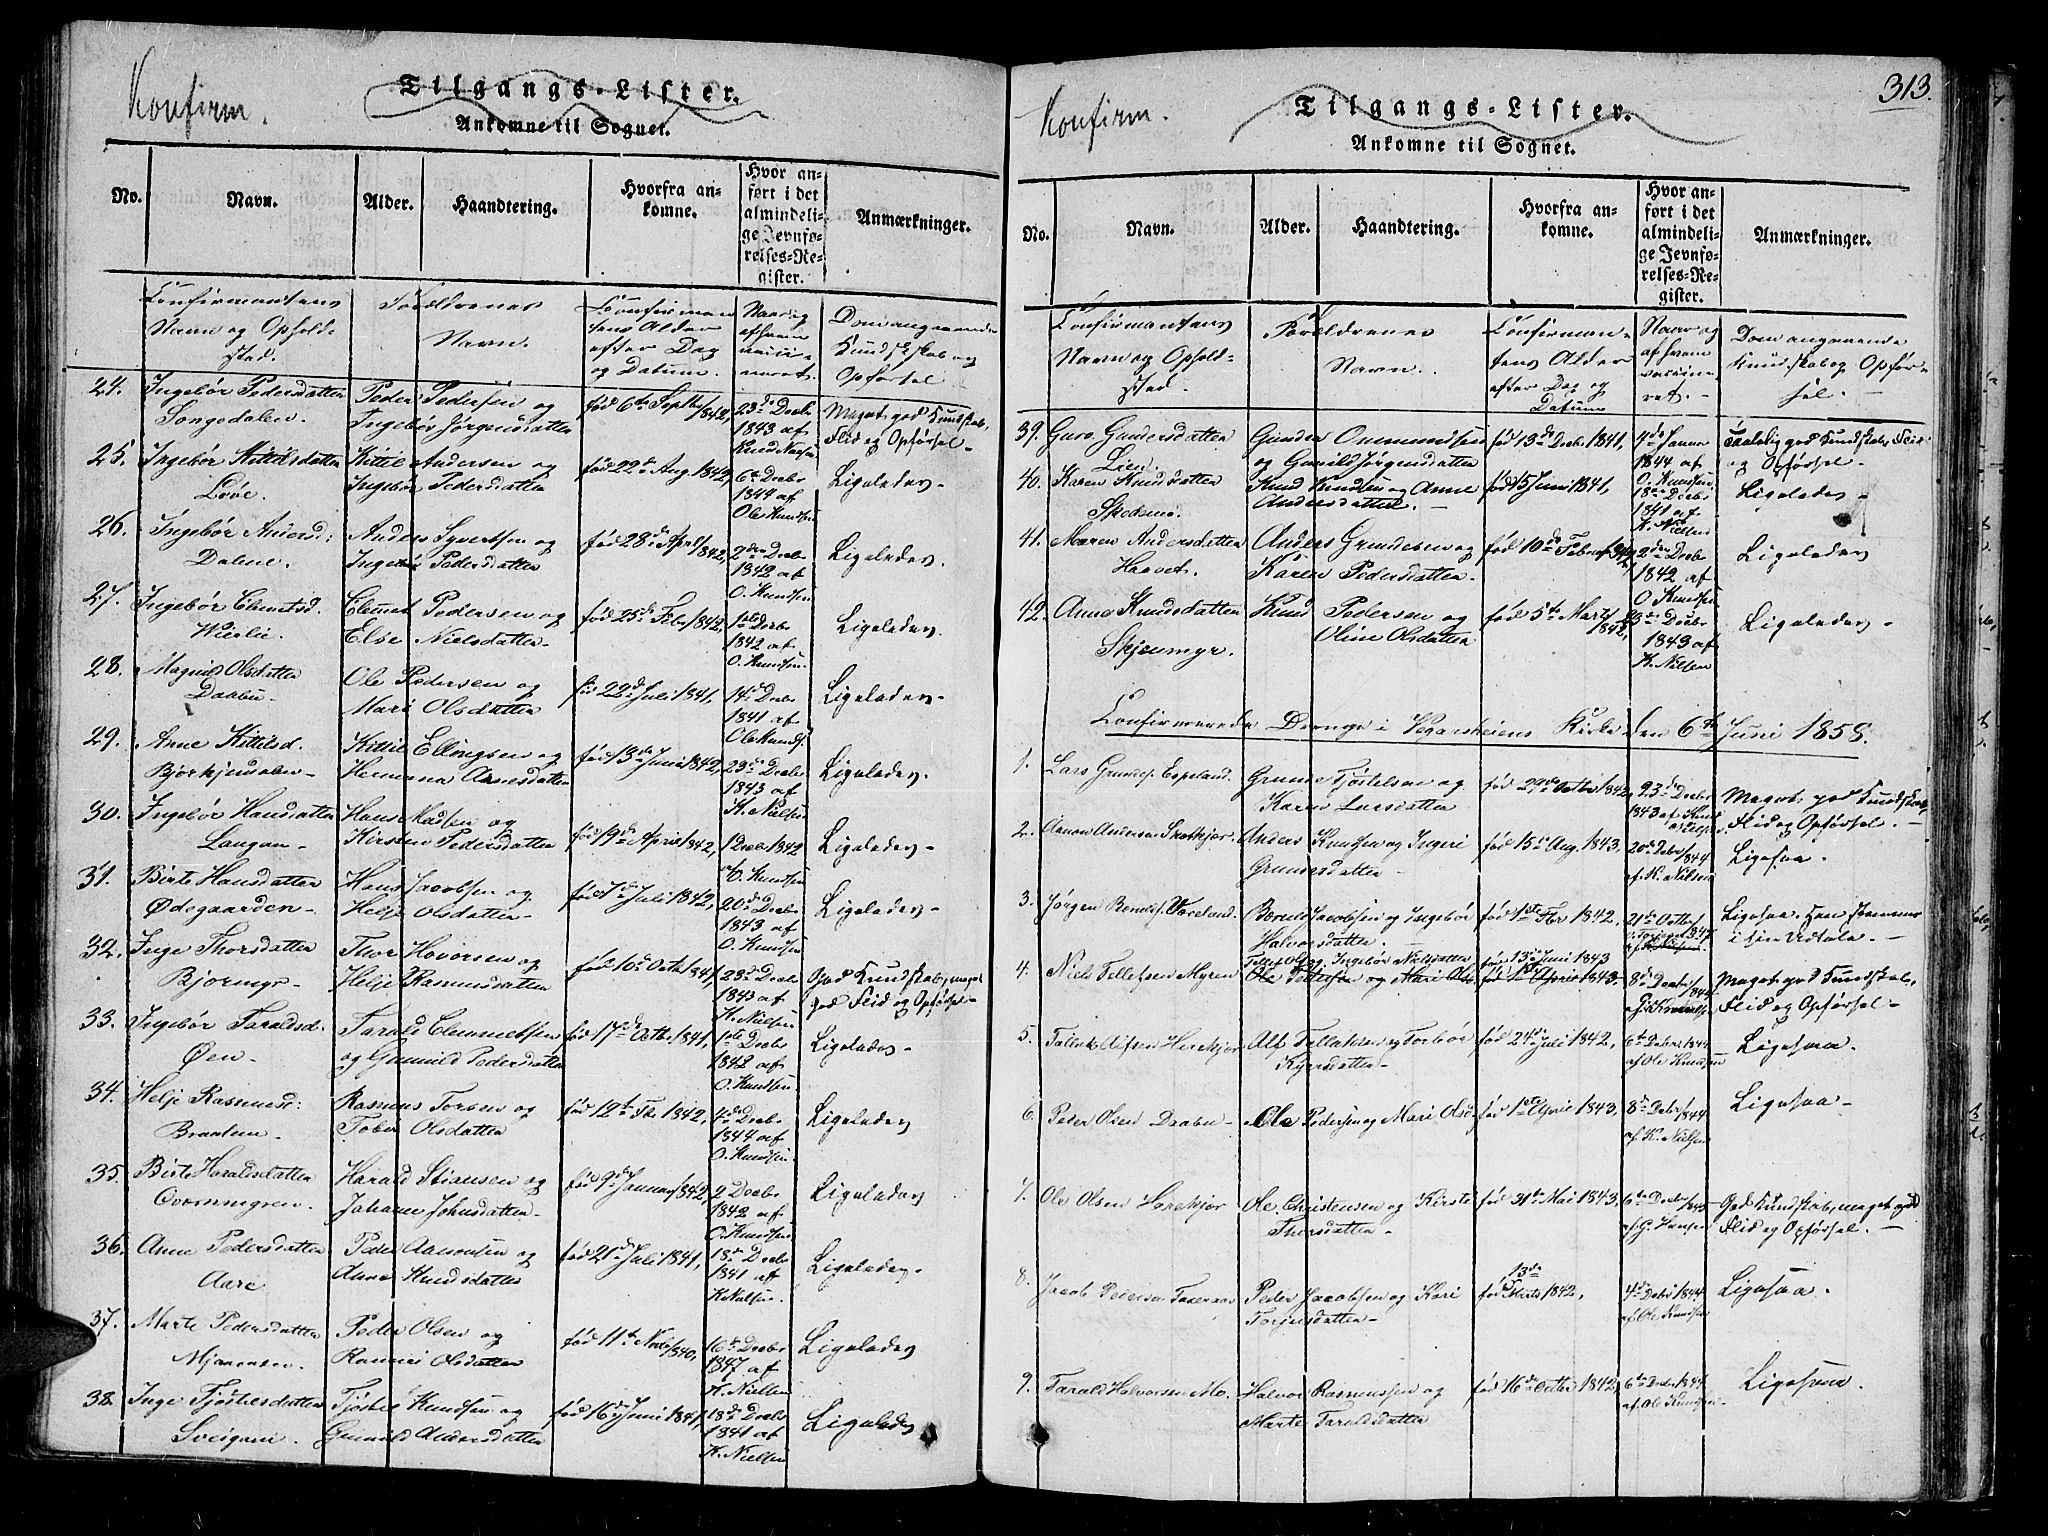 Konfirm.
Tilgangs-Lister.
Ankomne til Sognet.
No.
Navn.
Alder.
Haandtering.
Hvorfra an-
komne.
Hvor an-
ført i det
almindeli-
ge Jevnfø-
relses-Re-
gister.
Anmærkninger.
Confirmantens
Navn og Ophold-
sted.
Forældrenes
Navn.
Confirman
tens Alder
efter Dag
og Datum.
Naar og
af hvem
vacci-
neret.
Dom angaaende
Kundskab og
Opførsel
24. Ingebør Pedersdatter
Songedalen.
Peder Pedersen og
Ingebør Jørgensdatter
fød 6te Septbr 1842,
23de Decbr
1843 af
Knud Nielsen
Meget god Kundskab,
Flid og Opførsel -
25. Ingebør Kittilsdatter
Løve.
Kittil Andersen og
Ingebør Pedersdatter
fød 22de Aug. 1842,
6te Decbr
1844 af
Ole Knudsen
Ligeledes -
26. Ingebør Andersd:
Dalene.
Anders Syvertsen og
Ingebør Pedersdatter
fød 28de April 1842,
2den Decbr
1842 af
O. Knudsen
Ligeledes.
27. Ingebør Clemetsd.
Wierlie.
Clemet Pedersen og
Else Nielsdatter -
fød 25de Febr 1842,
1ste Decbr
1842 af
O. Knudsen
Ligeledes.
28. Magnild Olsdatter
Daabu.
Ole Pedersen og
Mari Olsdatter
fød 22de Juli 1841,
14de Decbr
1841 af
Ole Knuds.
Ligeledes -
29. Anne Kittilsd.
Kittil Ellingsen og
Hermana Aanesdatter
fød 13de Juni 1842,
23de Decbr
1843 af
K. Nielsen
Ligeledes.
30. Ingebør Hansdatter
Langan -
Hans Madsen og
Kirsten Pedersdatter
fød 19de April 1842,
1 Decbr 1842
af O. Knudsen
Ligeledes -
31. Birte Hansdatter
Ødegaarden -
Hans Jacobsen og
Helje Olsdatter -
fød 1de Juli 1842,
20de Decbr
1843 af
O. Knudsen
Ligeledes -
32. Inge Thorsdatter
Bjormyr -
Thor Hovorsen og
Helje Rasmusdatter
fød 10de Octbr 1841,
23de Decbr
1843 af
K. Nielsen
God Kundskab, meget
god Flid og Opførsel -
33. Ingebør Taraldsd -
Øen -
Tarald Clemmetsen
og Gunnild Pedersdatter
fød 17de Octbr 1841,
1ste Decbr
1842 af
O. Knudsen
Ligeledes -
34. Helje Rasmusd:
Braaten -
Rasmus Torsen og
Tober Olsdatter
fød 12te Fbr 1842,
4de Decbr
1844 af
O. Knudsen
Ligeledes
35. Birte Haraldsdatter
Harald Stiansen og
Johane Johnsdatter -
fød 9de Januar 1842,
2 Decbr
1842 af
O. Knudsen
Ligeledes
36. Anne Pedersdatter
Aare
Peder Aanonsen og
Anne Knudsdatter
fød 21de Juli 1841,
18de Decbr
1841 af
K. Nielsen
Ligeledes.
37. Marte Pedersdatter
Peder Olsen og
Olsdatter
fød 11te Novbr 1840,
16de Decbr
1847 af
K. Nielsen
Ligeledes
38. Inge Tjøstelsdatter
Tjøstel Knudsen og
Gunnild Andersdatter
fød 16de Juni 1841,
18de Decbr
1841 af
K. Nielsen
Ligeledes
Konfirm.
Tilgangs-Lister.
Ankomne til Sognet.
313.
No.
Navn.
Alder.
Haandtering.
Hvorfra an-
komne.
Hvor an-
ført i det
almindeli-
ge Jevnfø-
relses-Re-
gister.
Anmærkninger.
Confirmantens
Navn og Ophold-
sted.
Forældrenes
Navn.
Confirman-
tens Alder
efter Dag og
Datum
Naar og
af hvem
vaccine-
ret. -
Dom angaaende
Kundskab og Opfør-
sel. -
39. Guro Gundersdatter
Lien.
Gunder Ommundsen
og Gunild Jørgensdatter
fød 13de Decbr 1841,
4de Januar
1844 af
O. Knudsen
Taalelig god Kundskab, Flid
og Opførsel -
40. Karen Knudsdatter
Skedsmo.
Knud Knudsen og Anne
Andersdatter. -
fød 15 Juni 1841,
18de Decbr
1841 af
K. Nielsen
Ligeledes -
41. Maren Andersdatter
Haavet.
Anders Grundesen og
Karen Pedersdatter -
fød 10de Febr 1842,
2den Decbr
1842 af
O Knudsen
Ligeledes
42. Anne Knudsdatter
Skjenmyr.
Knud Pedersen og
Oline Olsdatter
fød 5te Marts 1842,
23de Decbr
1843 af
K. Nielsen
Ligeledes -
Confirmerede Drenge i Vegarsheiens Kirke den 6te Juni 1858.
1. Lars Grundes. Espeland.
Grunde Tjøstelsen og
Karen Larsdatter
fød 29de Octbr 1842,
23de Decbr
1843 af Knud
Nielsen
Meget god Kundskab,
Flid og Opførsel. -
2. Aanon Andersen Skaatkjær
Anders Knudsen og Ingeri
Grundesdatter -
fød 15de Aug. 1843,
20de Decbr 1844
af K. Nielsen
Ligesaa.
3. Jørgen Berndtsen Vaaeland.
Berndt Jacobsen og Ingebør
Halvorsdatter. -
fød 1ste Fbr 1842.
21de Octbr
1847
Ligesaa. Han stammer
i sin Udtale. -
4. Niels Tellefsen Myren
Tellef Olsen og Ingebør Nielsdatter
Ole Pedersen og Mari Ols
fød 13de Juni 1843
fød 1ste April 1843,
8de Decbr 1844
Meget god Kundskab,
Flid og Opførsel -
5. Tellak Alfsen Herekjær
Alf Tellaksen og Torbør
fød 24de Juli 1842,
6te Decbr 1844
af Ole Knudsen
Ligesaa.
6. Peder Olsen Daabu -
Ole Pedersen og Mari Olsd
fød 1ste April 1843,
8de Decbr 1844
af K. Nielsen
Ligesaa -
7. Ole Olsen
Ole Christensen og Kirste
Thorsdatter -
fød 31te Mai 1843,
6te Decbr 1843
af G. Hansen
God Kundskab, meget god
Flid og Opførsel. -
8. Jacob Pedersen
Peder Jacobsen og Kari
Torjusdatter -
13de
fød Marts 1842,
4de Decbr 1844
af Ole Knudsen
Ligesaa.
9. Tarald Halvorsen Mo.
Halvor Rasmussen og
Marte Taraldsdatter
fød 16de Octbr 1842,
6te Decbr 1844
af Ole Knudsen
Ligesaa.